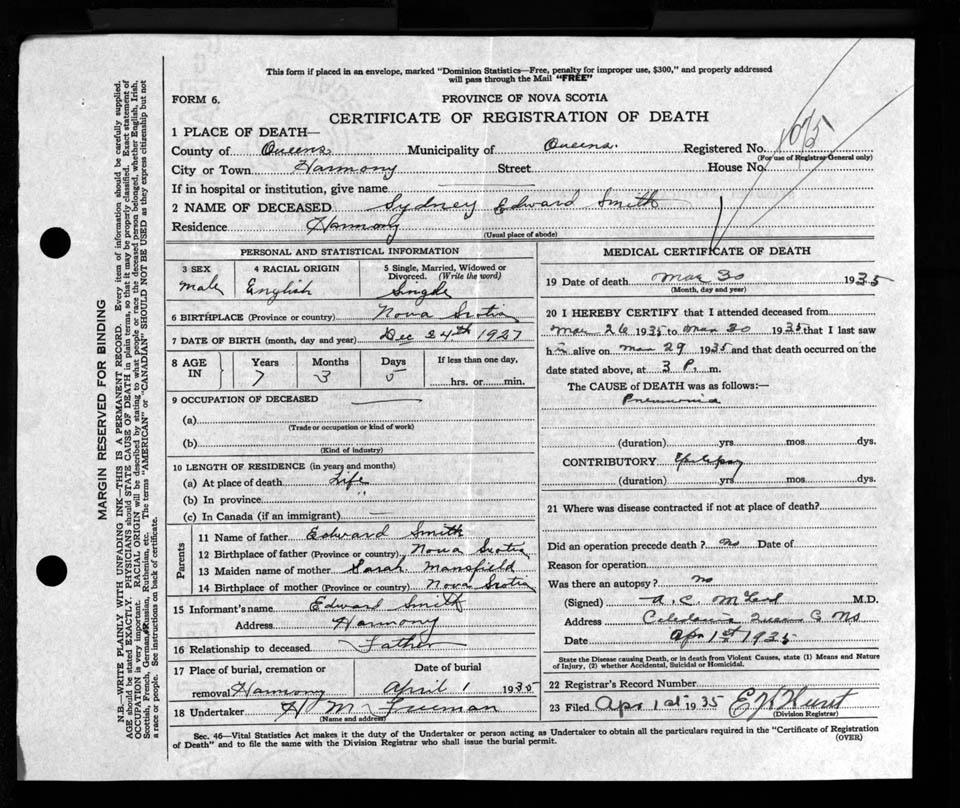 This form if placed in an envelope, marked "Dominion Statistics—Free, penalty for improper use, $300," and properly addressed
will pass through the Mail "FREE"
FORM 6.
PROVINCE OF NOVA SCOTIA
CERTIFICATE OF REGISTRATION OF DEATH
1 PLACE OF DEATH—
County of Queens Municipality of Queens. Registered No.
(For use of Registrar General only)
City or Town Harmony Street House No.
If in hospital or institution, give name
2 NAME OF DECEASED Sydney Edward Smith
Residence Harmony
(Usual place of abode)
PERSONAL AND STATISTICAL INFORMATION
3 SEX 4 RACIAL ORIGIN 5 Single, Married, Widowed or
Divorced. (Write the word)
Male English Single
6 BIRTHPLACE (Province or country) Nova Scotia
7 DATE OF BIRTH (month, day and year) Dec 24th 1927
8 AGE IN Years Months Days If less than one day,
7 3 5 hrs. or min.
9 OCCUPATION OF DECEASED
(a)
(Trade or occupation or kind of work)
(b)
(Kind of industry)
10 LENGTH OF RESIDENCE (in years and months)
(a) At place of death Life
(b) In province "
(c) In Canada (if an immigrant)
Parents
11 Name of father Edward Smith
12 Birthplace of father (Province or country) Nova Scotia
13 Maiden name of mother Sarah Mansfield
14 Birthplace of mother (Province or country) Nova Scotia
15 Informant's name Edward Smith
Address Harmony
16 Relationship to deceased Father
17 Place of burial, cremation or Date of burial
removal Harmony April 1 1935
18 Undertaker H M Freeman
(Name and address)
MEDICAL CERTIFICATE OF DEATH
19 Date of death Mar 30 1935
(Month, day and year)
20 I HEREBY CERTIFY that I attended deceased from
Mar 26 1935 to Mar 30 1935 that I last saw
h alive on Mar 29 1935 and that death occurred on the
date stated above, at 3 P. m.
The CAUSE of DEATH was as follows:—
Pneumonia
(duration) yrs. mos. dys.
CONTRIBUTORY Epilepsy
(duration) yrs. mos. dys.
21 Where was disease contracted if not at place of death?
Did an operation precede death? No Date of
Reason for operation
Was there an autopsy? No
(Signed) A. C. M.D.
Address Caledonia Queens Co NS
Date Apr 1st 1935
State the Disease causing Death, or in death from Violent Causes, state (1) Means and Nature
of Injury, (2) whether Accidental, Suicidal or Homicidal.
22 Registrar's Record Number
23 Filed Apr 1st 1935
(Division Registrar)
Sec. 46—Vital Statistics Act makes it the duty of the Undertaker or person acting as Undertaker to obtain all the particulars required in the "Certificate of Registration
of Death" and to file the same with the Division Registrar who shall issue the burial permit.
(OVER)
MARGIN RESERVED FOR BINDING
N.B.—WRITE PLAINLY WITH UNFADING INK—THIS IS A PERMANENT RECORD. Every item of information should be carefully supplied.
AGE should be stated EXACTLY. PHYSICIANS should STATE CAUSE OF DEATH in plain terms, so that it may be properly classified. Exact statement of
OCCUPATION is very important. RACIAL ORIGIN will be described by stating to what people or race the deceased person belonged, whether English, Irish,
Scottish, French, German, Russian, Ruthenian, etc. The terms "AMERICAN" or "CANADIAN" SHOULD NOT BE USED as they express citizenship but not
a race or people. See instructions on back of certificate.